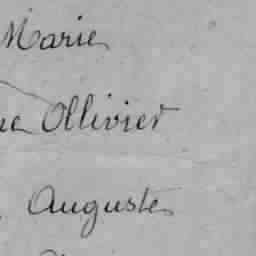 Marie
ue Ollivier
Auguste